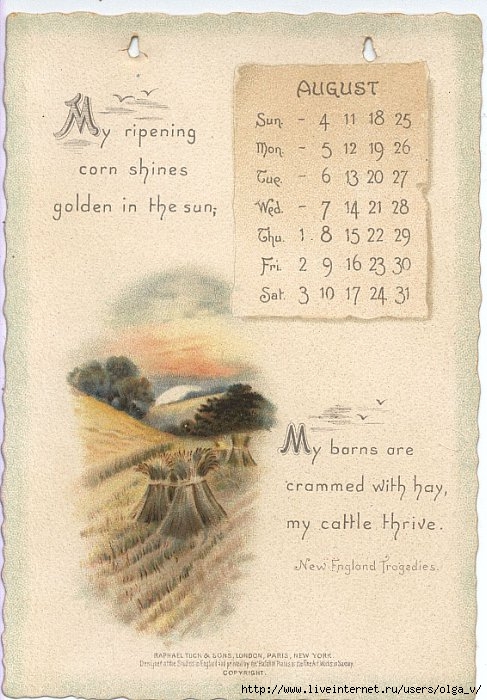 My ripening
corn shines
golden in the sun;
AUGUST
Sun. - 4 11 18 25
Mon. - 5 12 19 26
Tue. - 6 13 20 27
Wed. - 7 14 21 28
Thu. 1. 8 15 22 29
Fri. 2 9 16 23 30
Sat. 3 10 17 24 31
My barns are
crammed with hay,
my cattle thrive.
New England Tragedies.
RAPHAEL TUCK & SONS, LONDON, PARIS, NEW YORK.
Designed at the Studios in England and printed by the at the Fine Art Works in Saxony.
COPYRIGHT.
http://www.liveinternet.ru/users/olga_v/